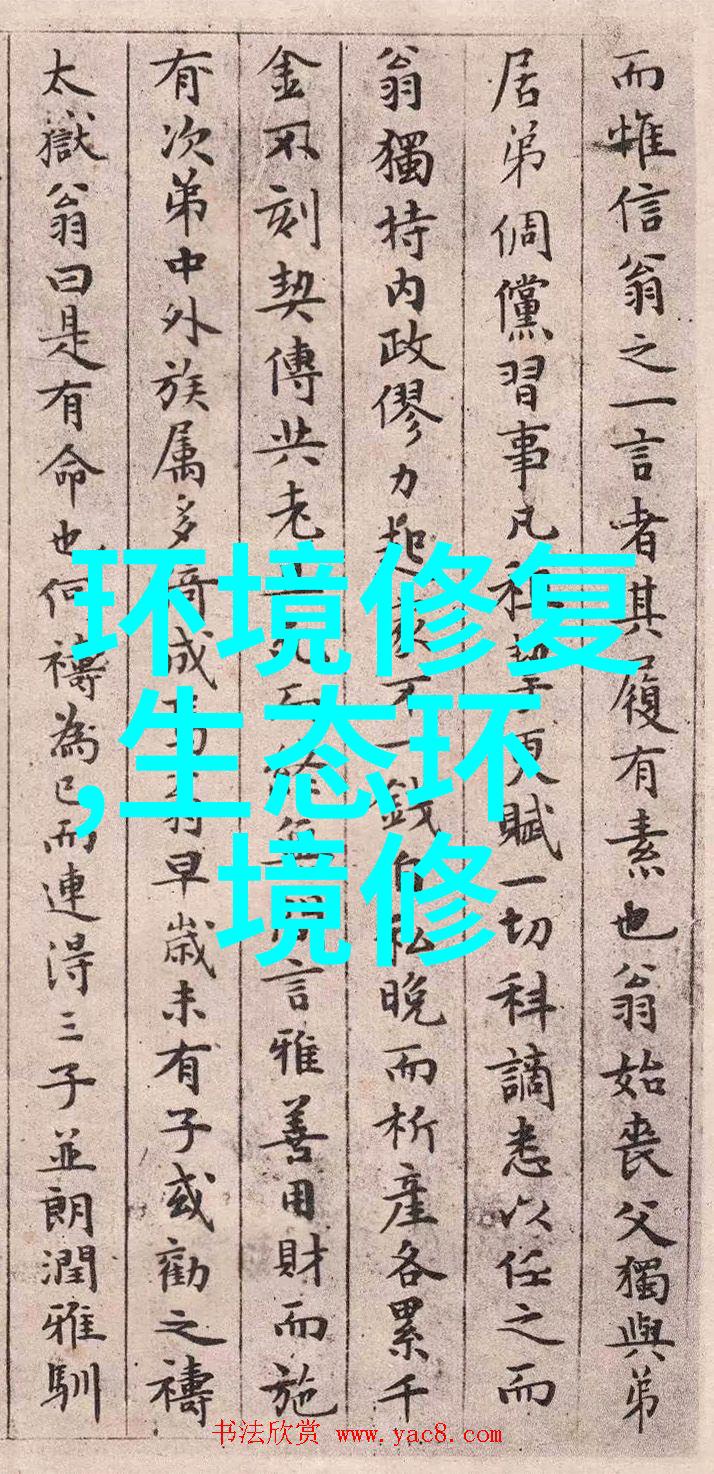 而惟信翁之一言者其履有素也翁始喪父獨與弟
居弟倜儻習事凡
更賦一切科謫悉以任之而
翁獨持内政僇力起
不一錢自私晚而析產各累千
金不刻契傳共老
無間言雅善用財而施
有次弟中外族属多
成
早歲未有子或勸之禱
太嶽翁曰是有命也何禱為已而連得三子並朗潤雅馴
环境修复
,生态环
境修
书法欣赏 www.yac8.com